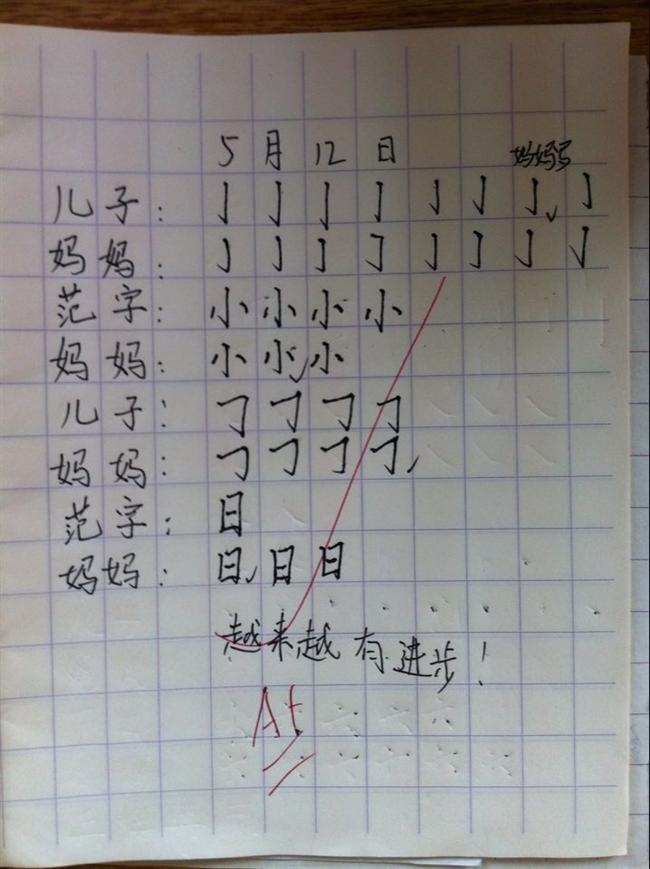 5月12日
妈妈
儿子：亅亅亅亅亅亅亅亅
妈妈：亅亅亅亅亅亅亅亅
范字：小小小小
妈妈：小小小
儿子：㇆㇆㇆㇆
妈妈：㇆㇆㇆㇆
范字：日
妈妈：日日日
越来越有进步！
A+